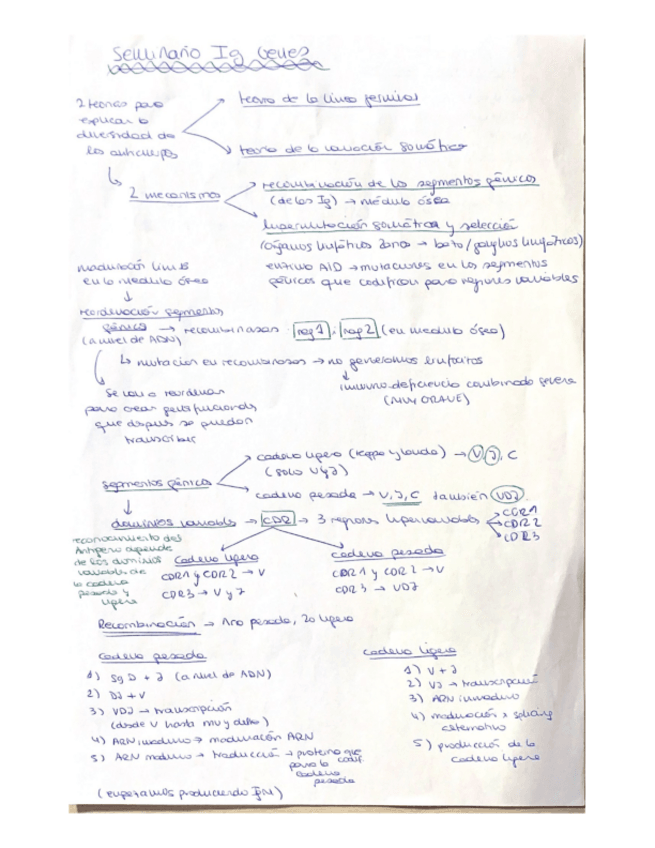 Seminario Ig Genes
2 teorías para
explicar la
diversidad de
los anticuerpos
teoría de la línea germinal
teoría de la variación somática
2 mecanismos
recombinación de los segmentos génicos
(de las Ig) → médula ósea
hipermutación somática y selección
(órganos linfáticos 2arios → bazo/ganglios linfáticos)
enzima AID → mutaciones en los segmentos
génicos que codifican para regiones variables
maduración linf B
en la médula ósea
reordenación segmentos
génicos → recombinasas rag1, rag2 (en médula ósea)
(a nivel de ADN)
↳ mutación en recombinasas → no generamos linfocitos
inmunodeficiencia combinada severa
(MUY GRAVE)
Se van a reordenar
para crear genes funcionales
que después se puedan
transcribir
segmentos génicos
cadena ligera (kappa y landa) → V J, C
(solo V y J)
cadena pesada → V, J, C también VDJ
dominios variables → CDR → 3 regiones hipervariables
CDR1
CDR2
CDR3
reconocimiento del
Antígeno depende
de los dominios
variables de
la cadena
pesada y
ligera
Cadena ligera
CDR1 y CDR2 → V
CDR3 → V y J
cadena pesada
CDR1 y CDR2 → V
CDR3 → VDJ
Recombinación → 1ro pesada, 2o ligera
cadena pesada
1) Sg D + J (a nivel de ADN)
2) DJ + V
3) VDJ → transcripción
(desde V hasta mu y delta)
4) ARN inmaduro → maduración ARN
5) ARN maduro → traducción → proteína que
para la codif.
cadena
pesada
(empezamos produciendo IgM)
cadena ligera
1) V + J
2) VJ → transcripción
3) ARN inmaduro
4) maduración x splicing
alternativo
5) producción de la
cadena ligera